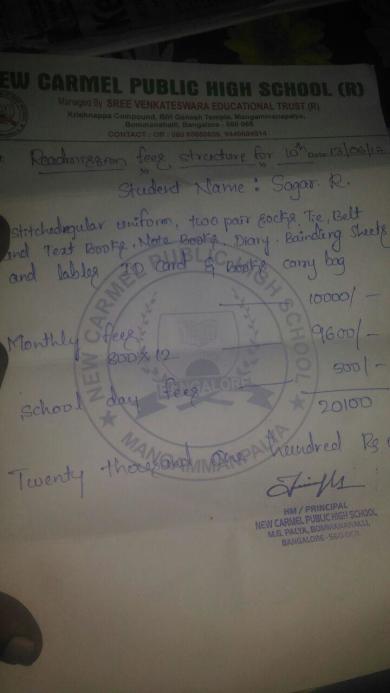 NEW CARMEL PUBLIC HIGH SCHOOL (R)
Managed By SREE VENKATESWARA EDUCATIONAL TRUST (R)
Krishnappa Compound, BIM Ganesh Temple, Mangammanapalya,
Bommanahalli, Bangalore - 560 068
CONTACT : Off :
Readmission fees structure for 10th Date: 13/06/17
Student Name : Sagar. R.
stitchedregular uniform, two pair socks, Tie, Belt
and Text Books, Note Books, Diary, Bainding Sheets
and lables ID card & Books carry bag
10000/-
Monthly fees
800 x 12
9600/-
School day fees
500/-
20100
Twenty thousand one hundred Rs
NEW CARMEL PUBLIC HIGH SCHOOL
BANGALORE
MANGAMMANAPALYA
HM / PRINCIPAL
NEW CARMEL PUBLIC HIGH SCHOOL
M.G. PALYA, BOMMANAHALLI
BANGALORE - 560 068